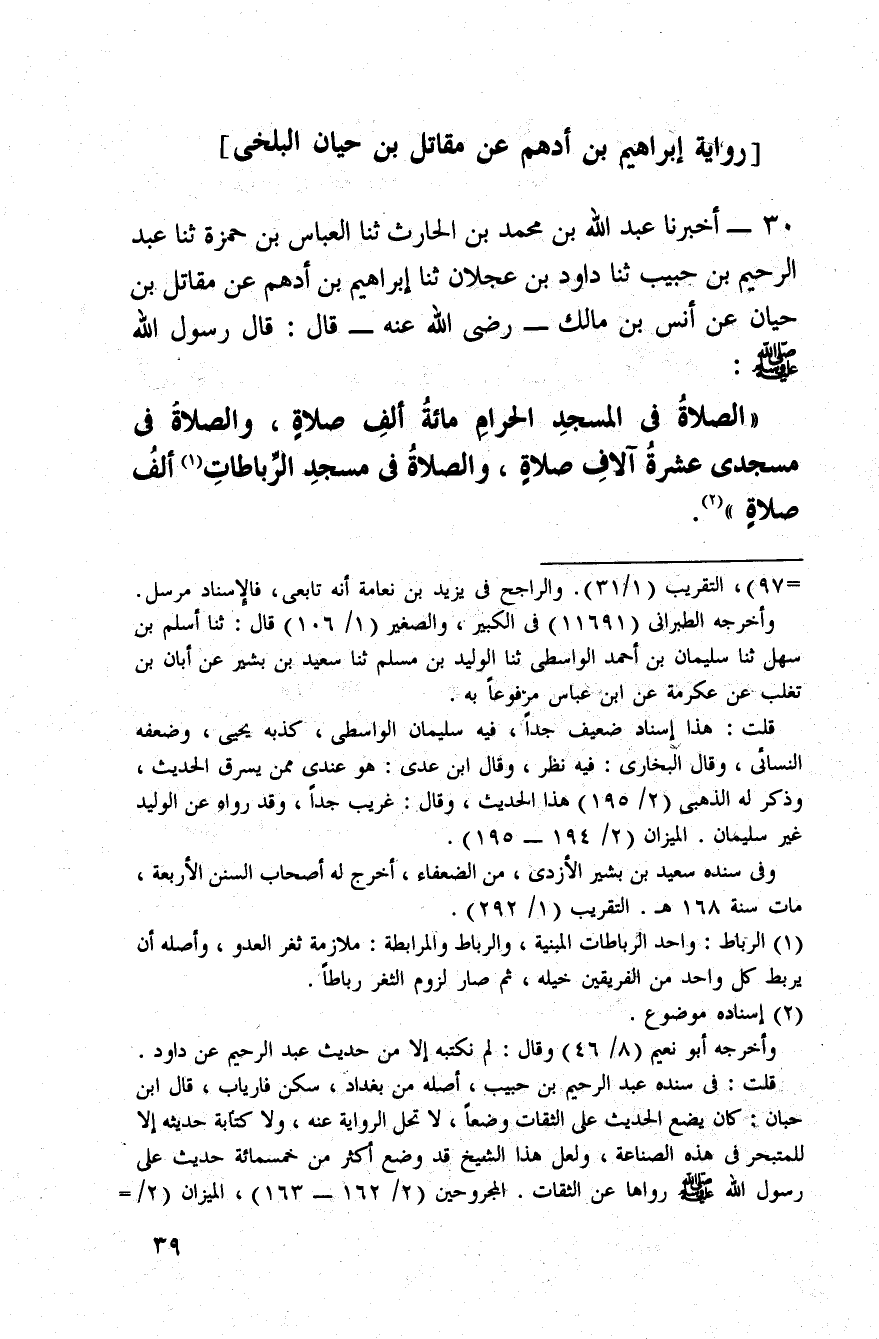 [رواية إبراهيم بن أدهم عن مقاتل بن حيان البلخى]
٣٠ — أخبرنا عبد الله بن محمد بن الحارث ثنا العباس بن حمزة ثنا عبد
الرحيم بن حبيب ثنا داود بن عجلان ثنا إبراهيم بن أدهم عن مقاتل بن
حيان عن أنس بن مالك — رضى الله عنه — قال : قال رسول الله
ﷺ :
« الصلاةُ فى المسجدِ الحرامِ مائةُ ألفِ صلاةٍ ، والصلاةُ فى
مسجدى عشرةُ آلافِ صلاةٍ ، والصلاةُ فى مسجدِ الرِّباطاتِ(١) ألفُ
صلاةٍ »(٢).
=٩٧) ، التقريب (٣١/١). والراجح فى يزيد بن نعامة أنه تابعى، فالإسناد مرسل.
وأخرجه الطبرانى (١١٦٩١) فى الكبير ، والصغير (١/ ١٠٦) قال : ثنا أسلم بن
سهل ثنا سليمان بن أحمد الواسطى ثنا الوليد بن مسلم ثنا سعيد بن بشير عن أبان بن
تغلب عن عكرمة عن ابن عباس مرفوعاً به .
قلت : هذا إسناد ضعيف جداً ، فيه سليمان الواسطى ، كذبه يحيى ، وضعفه
النسائى ، وقال البخارى : فيه نظر ، وقال ابن عدى : هو عندى ممن يسرق الحديث ،
وذكر له الذهبى (٢/ ١٩٥) هذا الحديث ، وقال : غريب جداً ، وقد رواه عن الوليد
غير سليمان . الميزان (٢/ ١٩٤ — ١٩٥) .
وفى سنده سعيد بن بشير الأزدى ، من الضعفاء ، أخرج له أصحاب السنن الأربعة ،
مات سنة ١٦٨ هـ . التقريب (١/ ٢٩٢) .
(١) الرباط : واحد الرباطات المبنية ، والرباط والمرابطة : ملازمة ثغر العدو ، وأصله أن
يربط كل واحد من الفريقين خيله ، ثم صار لزوم الثغر رباطاً .
(٢) إسناده موضوع .
وأخرجه أبو نعيم (٨/ ٤٦) وقال : لم نكتبه إلا من حديث عبد الرحيم عن داود .
قلت : فى سنده عبد الرحيم بن حبيب ، أصله من بغداد ، سكن فارياب ، قال ابن
حبان : كان يضع الحديث على الثقات وضعاً ، لا تحل الرواية عنه ، ولا كتابة حديثه إلا
للمتبحر فى هذه الصناعة ، ولعل هذا الشيخ قد وضع أكثر من خمسمائة حديث على
رسول الله ﷺ رواها عن الثقات . المجروحين (٢/ ١٦٢ — ١٦٣) ، الميزان (٢/ =
٣٩